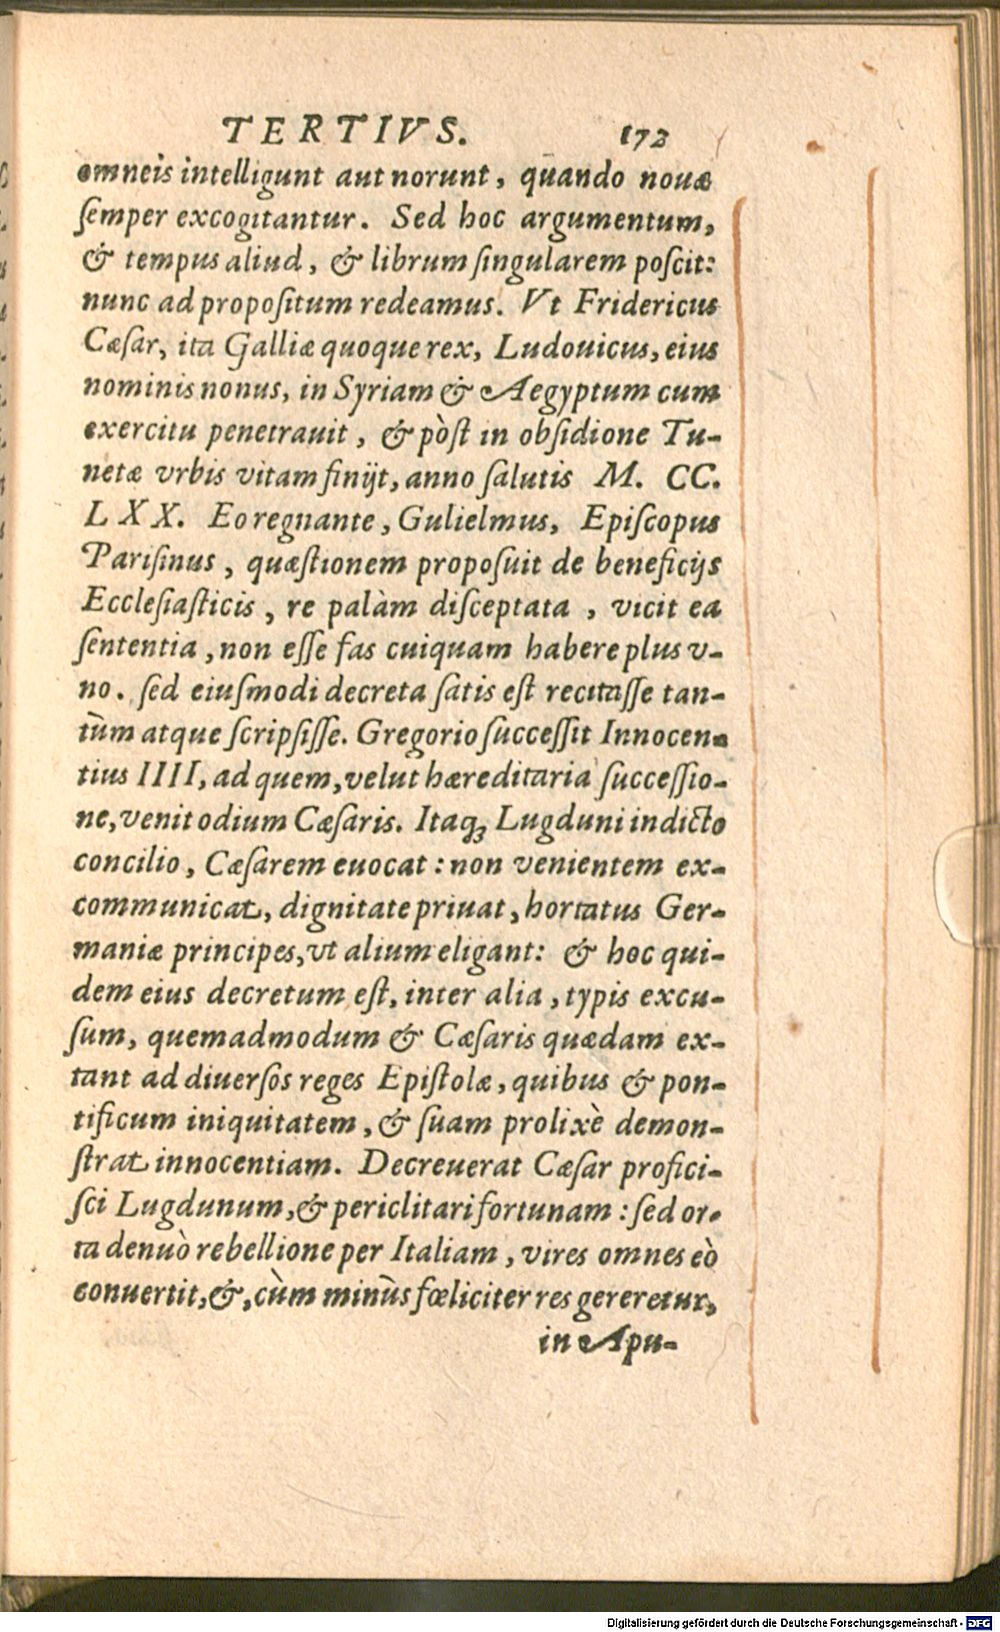 TERTIVS. 173
omneis intelligunt aut norunt, quando nouæ
ſemper excogitantur. Sed hoc argumentum,
& tempus aliud, & librum ſingularem poſcit:
nunc ad propoſitum redeamus. Vt Fridericus
Cæſar, ita Galliæ quoque rex, Ludouicus, eius
nominis nonus, in Syriam & Aegyptum cum
exercitu penetrauit, & pòſt in obſidione Tu-
netæ vrbis vitam finijt, anno ſalutis M. CC.
LXX. Eo regnante, Gulielmus, Epiſcopus
Pariſinus, quæſtionem propoſuit de beneficijs
Eccleſiaſticis, re palàm diſceptata, vicit ea
ſententia, non eſſe fas cuiquam habere plus v-
no. ſed eiuſmodi decreta ſatis eſt recitaſſe tan-
tùm atque ſcripſiſſe. Gregorio ſucceſſit Innocen-
tius IIII, ad quem, velut hæreditaria ſucceſſio-
ne, venit odium Cæſaris. Itaq; Lugduni indicto
concilio, Cæſarem euocat: non venientem ex-
communicat, dignitate priuat, hortatus Ger-
maniæ principes, vt alium eligant: & hoc qui-
dem eius decretum eſt, inter alia, typis excu-
ſum, quemadmodum & Cæſaris quædam ex-
tant ad diuerſos reges Epiſtolæ, quibus & pon-
tificum iniquitatem, & ſuam prolixè demon-
ſtrat innocentiam. Decreuerat Cæſar profici-
ſci Lugdunum, & periclitari fortunam: ſed or-
ta denuò rebellione per Italiam, vires omnes eò
conuertit, &, cùm minùs fœliciter res gereretur,
in Apu-
Digitalisierung gefördert durch die Deutsche Forschungsgemeinschaft - DFG